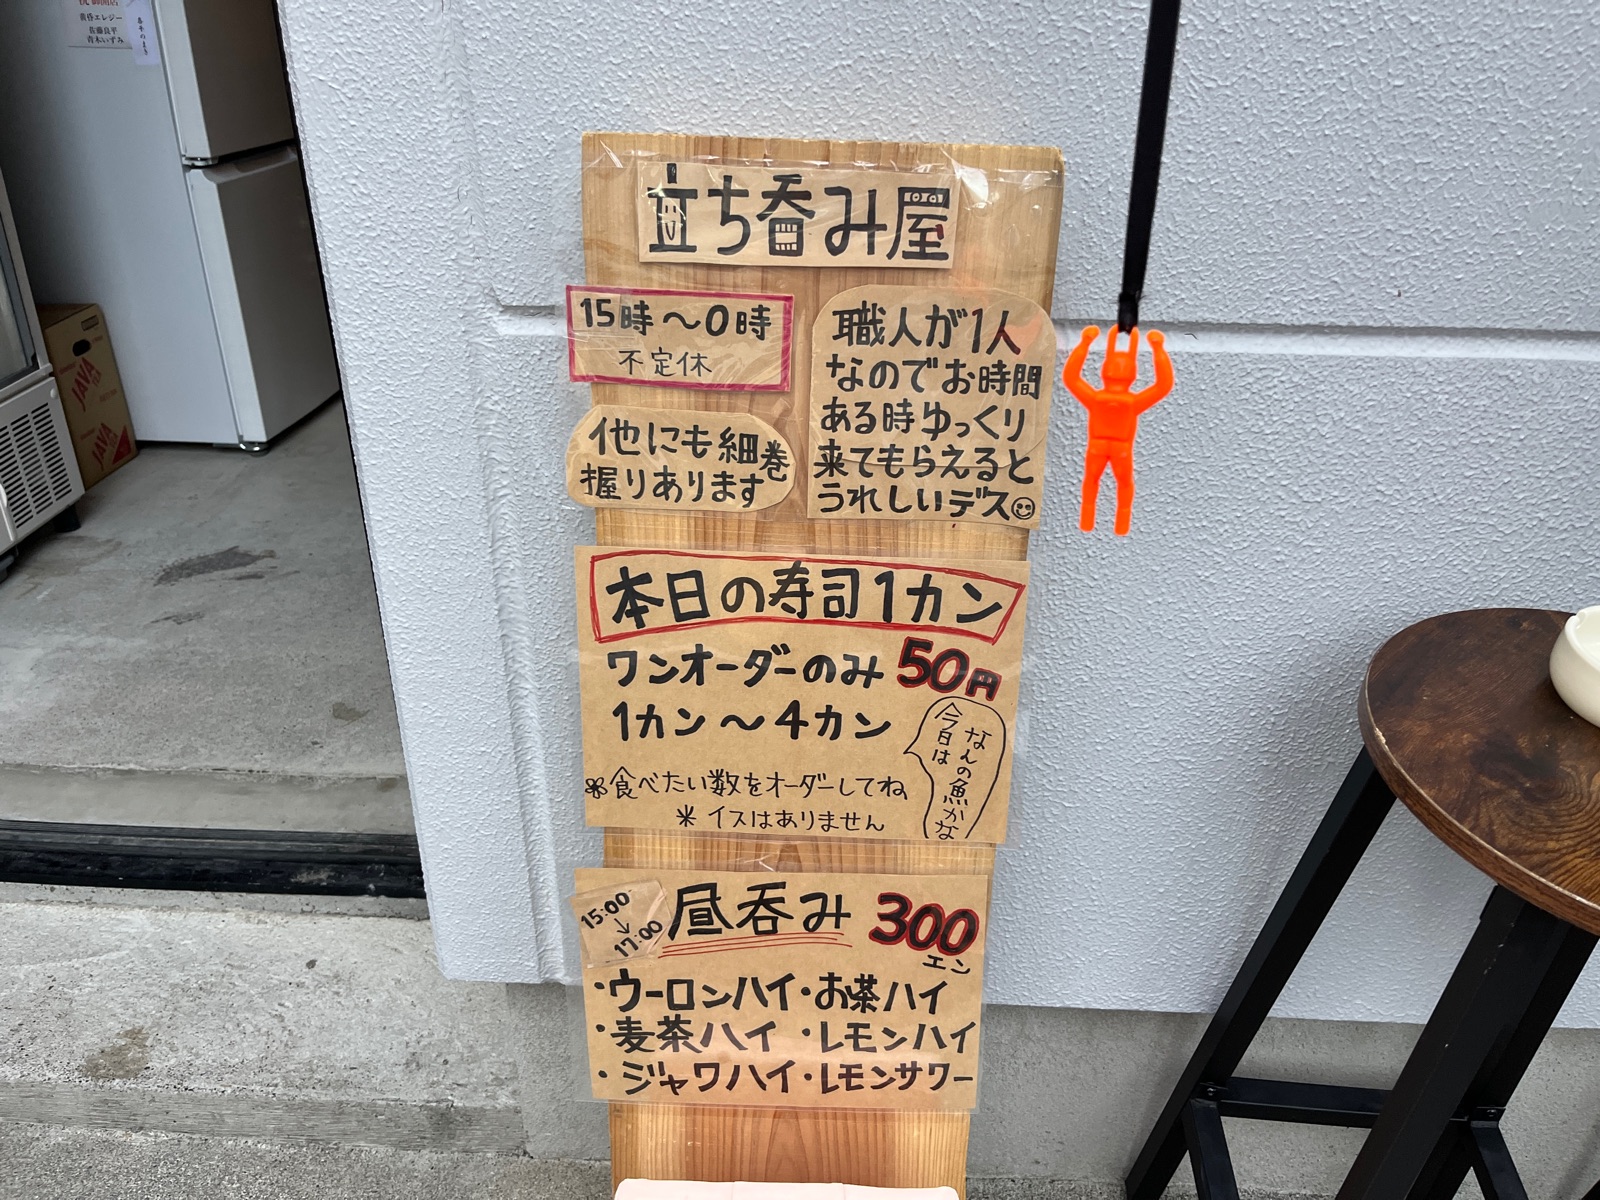 御開店
黄昏エレジー
佐藤良平
青木いずみ
立ち呑み屋
15時〜0時
不定休
職人が1人
なのでお時間
ある時ゆっくり
来てもらえると
うれしいデス
他にも細巻
握りあります
本日の寿司1カン
ワンオーダーのみ 50円
1カン〜4カン
今日は
なんの魚かな
※食べたい数をオーダーしてね
※イスはありません
15:00
↓
17:00
昼呑み 300
エン
・ウーロンハイ・お茶ハイ
・麦茶ハイ ・レモンハイ
・ジャワハイ・レモンサワー
JAVA
TEA
JAVA